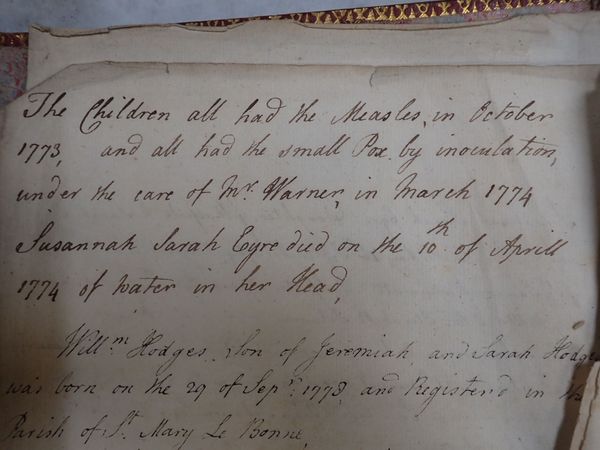 The Children all had the Measles, in October
1773, and all had the small Pox by inoculation,
under the care of Mr. Warner, in March 1774
Susannah Sarah Eyre died on the 10th of Aprill
1774 of water in her Head,
Willm. Hodges, Son of Jeremiah, and Sarah Hodge
was born on the 29 of Sepr. 1773, and Registerd in th
Parish of St. Mary Le Bonne,